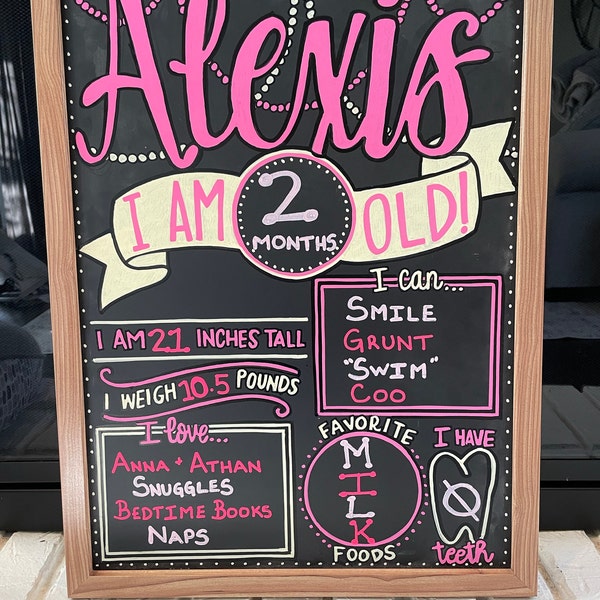 Alexis
I AM 2 MONTHS OLD!
I AM 21 INCHES TALL
I WEIGH 10.5 POUNDS
I can...
SMILE
GRUNT
"SWIM"
COO
I love...
ANNA + ATHAN
SNUGGLES
BEDTIME BOOKS
NAPS
FAVORITE
MILK
FOODS
I HAVE
Ø
teeth